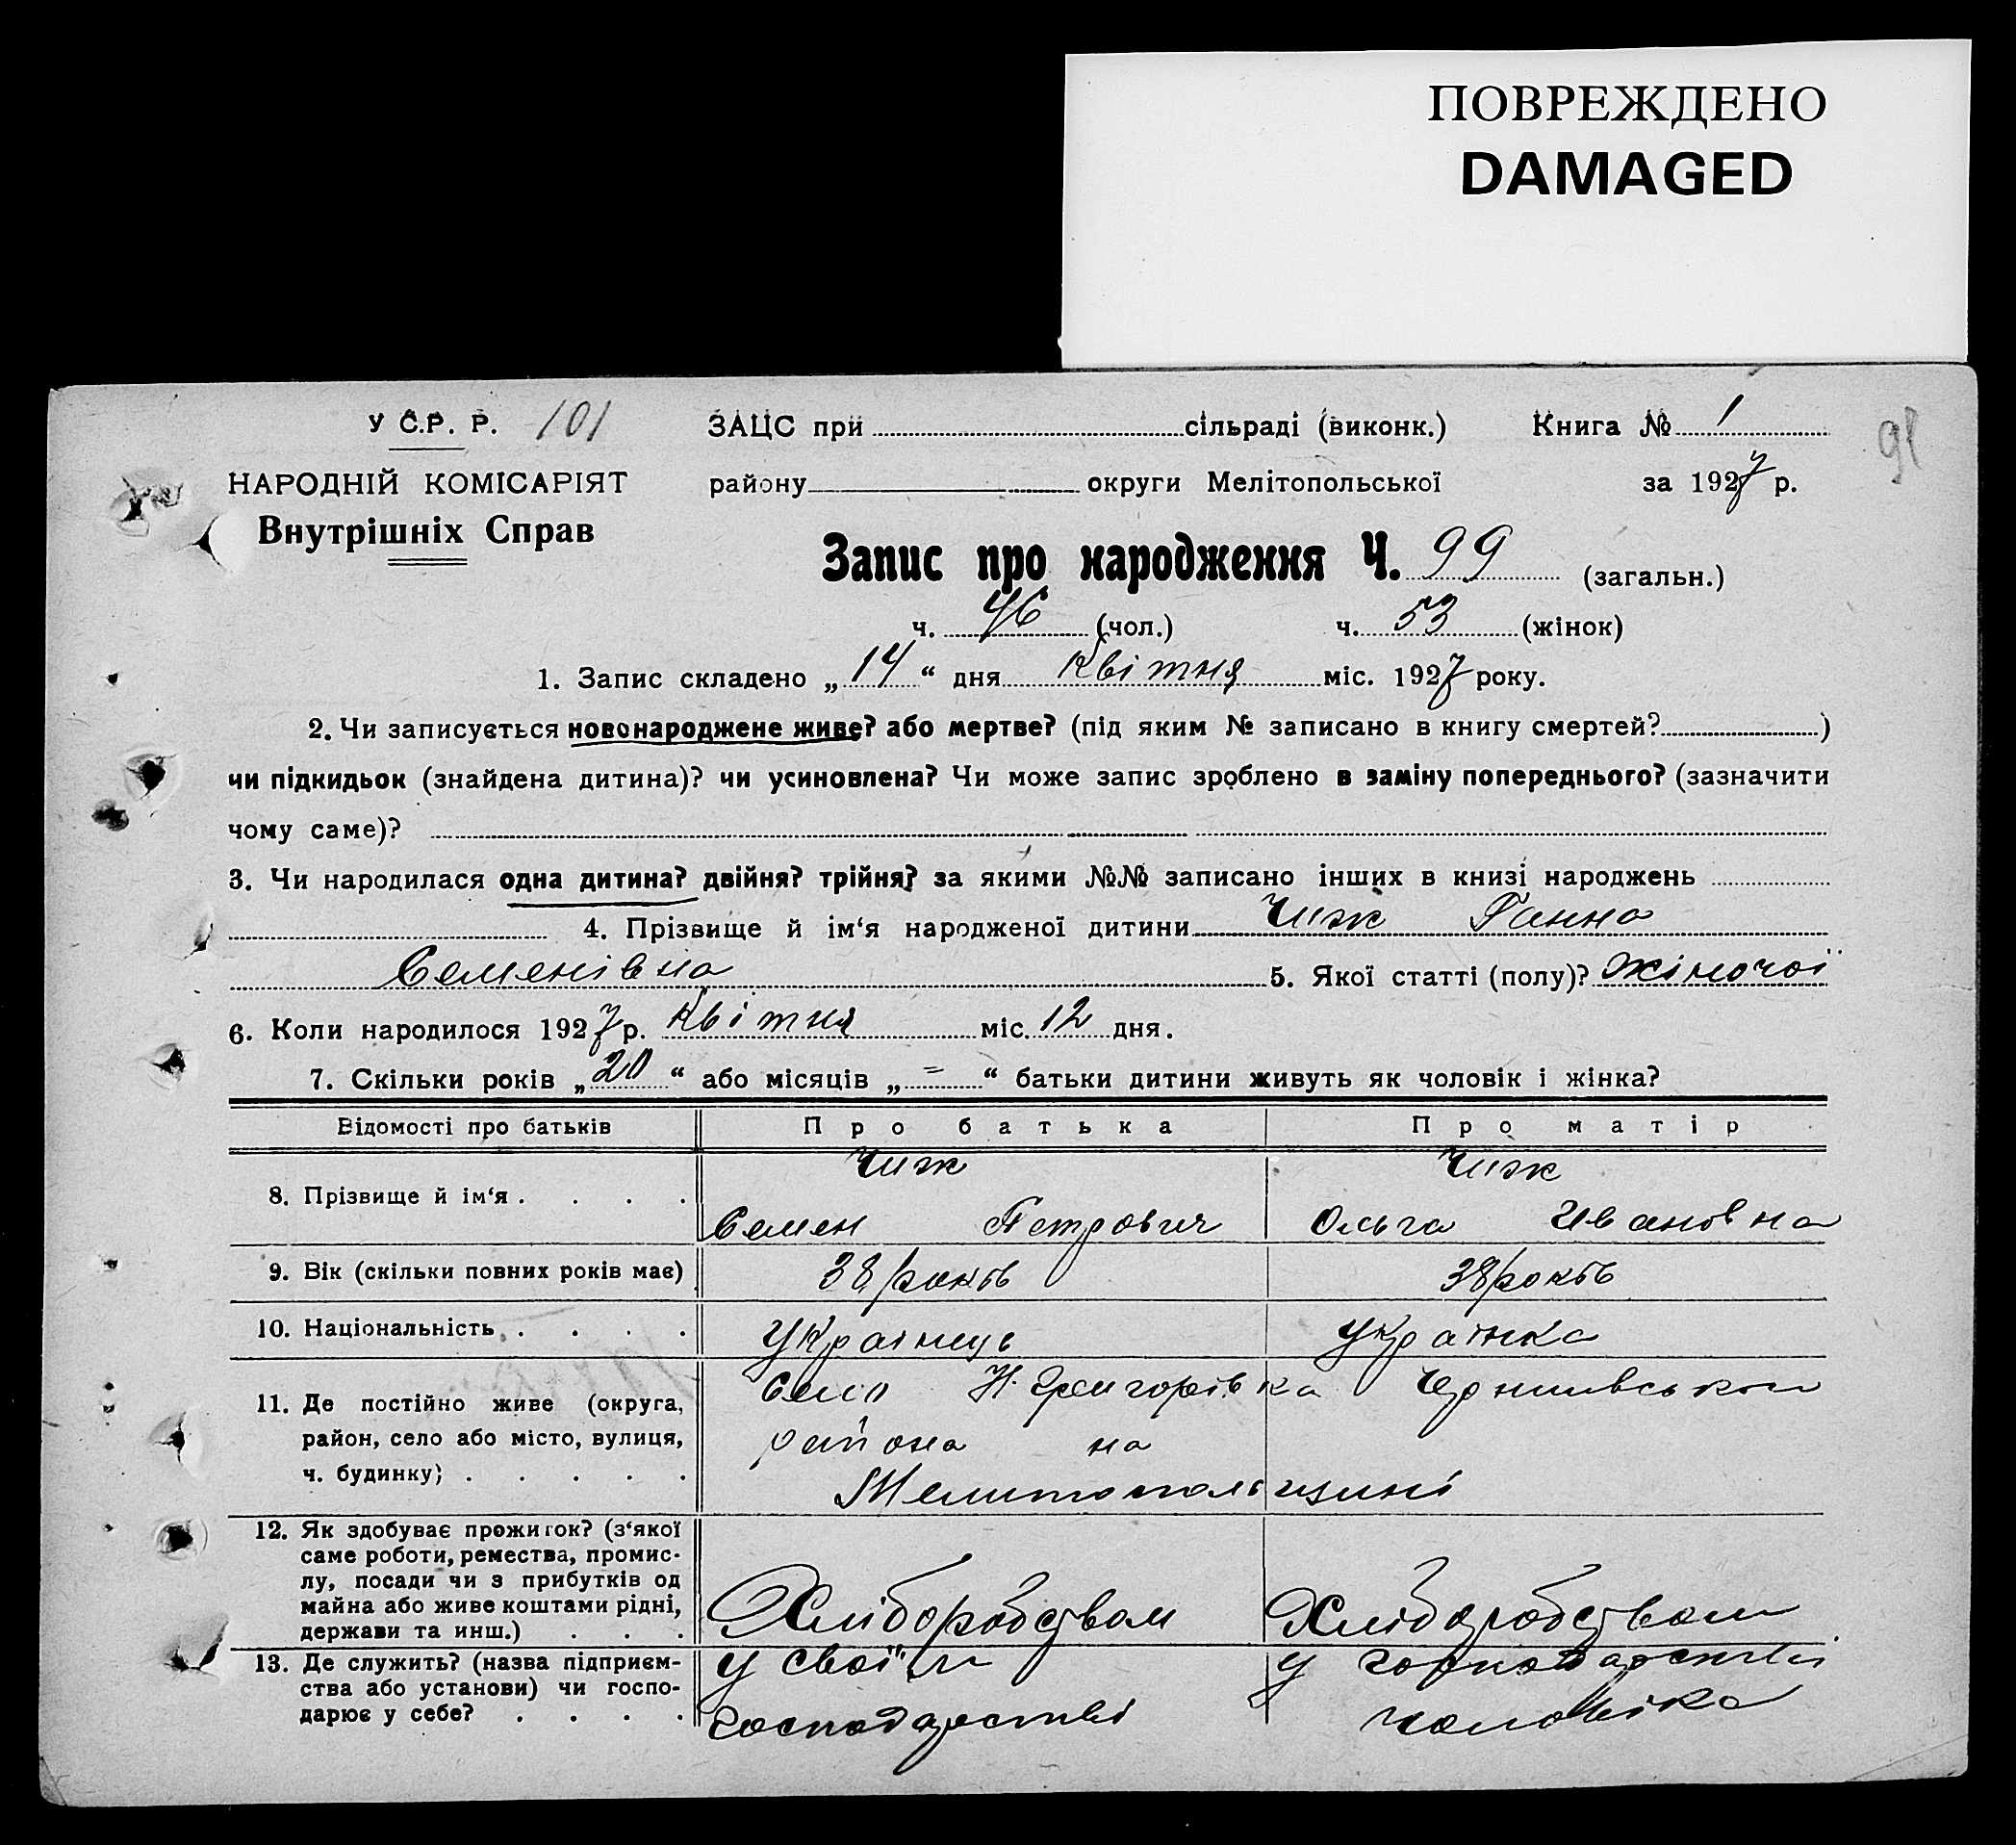 ПОВРЕЖДЕНО
DAMAGED
У С.Р. Р. 101 ЗАЦС при сільраді (виконк.) Книга № 1
91
НАРОДНІЙ КОМІСАРІЯТ району округи Мелітопольської за 1927 р.
Внутрішніх Справ
Запис про народження Ч. 99 (загальн.)
ч. 46 (чол.) ч. 53 (жінок)
1. Запис складено „14“ дня Квітня міс. 1927 року.
2. Чи записується новонароджене живе? або мертве? (під яким № записано в книгу смертей? )
чи підкидьок (знайдена дитина)? чи усиновлена? Чи може запис зроблено в заміну попереднього? (зазначити
чому саме)?
3. Чи народилася одна дитина? двійня? трійня? за якими №№ записано інших в книзі народжень
4. Прізвище й ім‘я народженої дитини Чиж Ганна
Семенівна 5. Якої статті (полу)? жіночої
6. Коли народилося 1927 р. Квітня міс. 12 дня.
7. Скільки років „20“ або місяців „=“ батьки дитини живуть як чоловік і жінка?
Відомості про батьків Про батька Про матір
Чиж Чиж
8. Прізвище й ім‘я . . . .
Семен Петрович Ольга Ивановна
9. Вік (скільки повних років має) 38 років 38 років
10. Національність . . . . Українець Українка
11. Де постійно живе (округа, Село Н. Григорівка
район, село або місто, вулиця, района на
ч. будинку) . . . . .
Мелитопольщині
12. Як здобуває прожиток? (з‘якої
саме роботи, ремества, промис-
лу, посади чи з прибутків од
майна або живе коштами рідні, Хліборобством Хліборобством
держави та инш.) . . .
13. Де служить? (назва підприєм- у своїм у господарстві
ства або установи) чи госпо-
дарює у себе? . . . . господарстві чоловіка